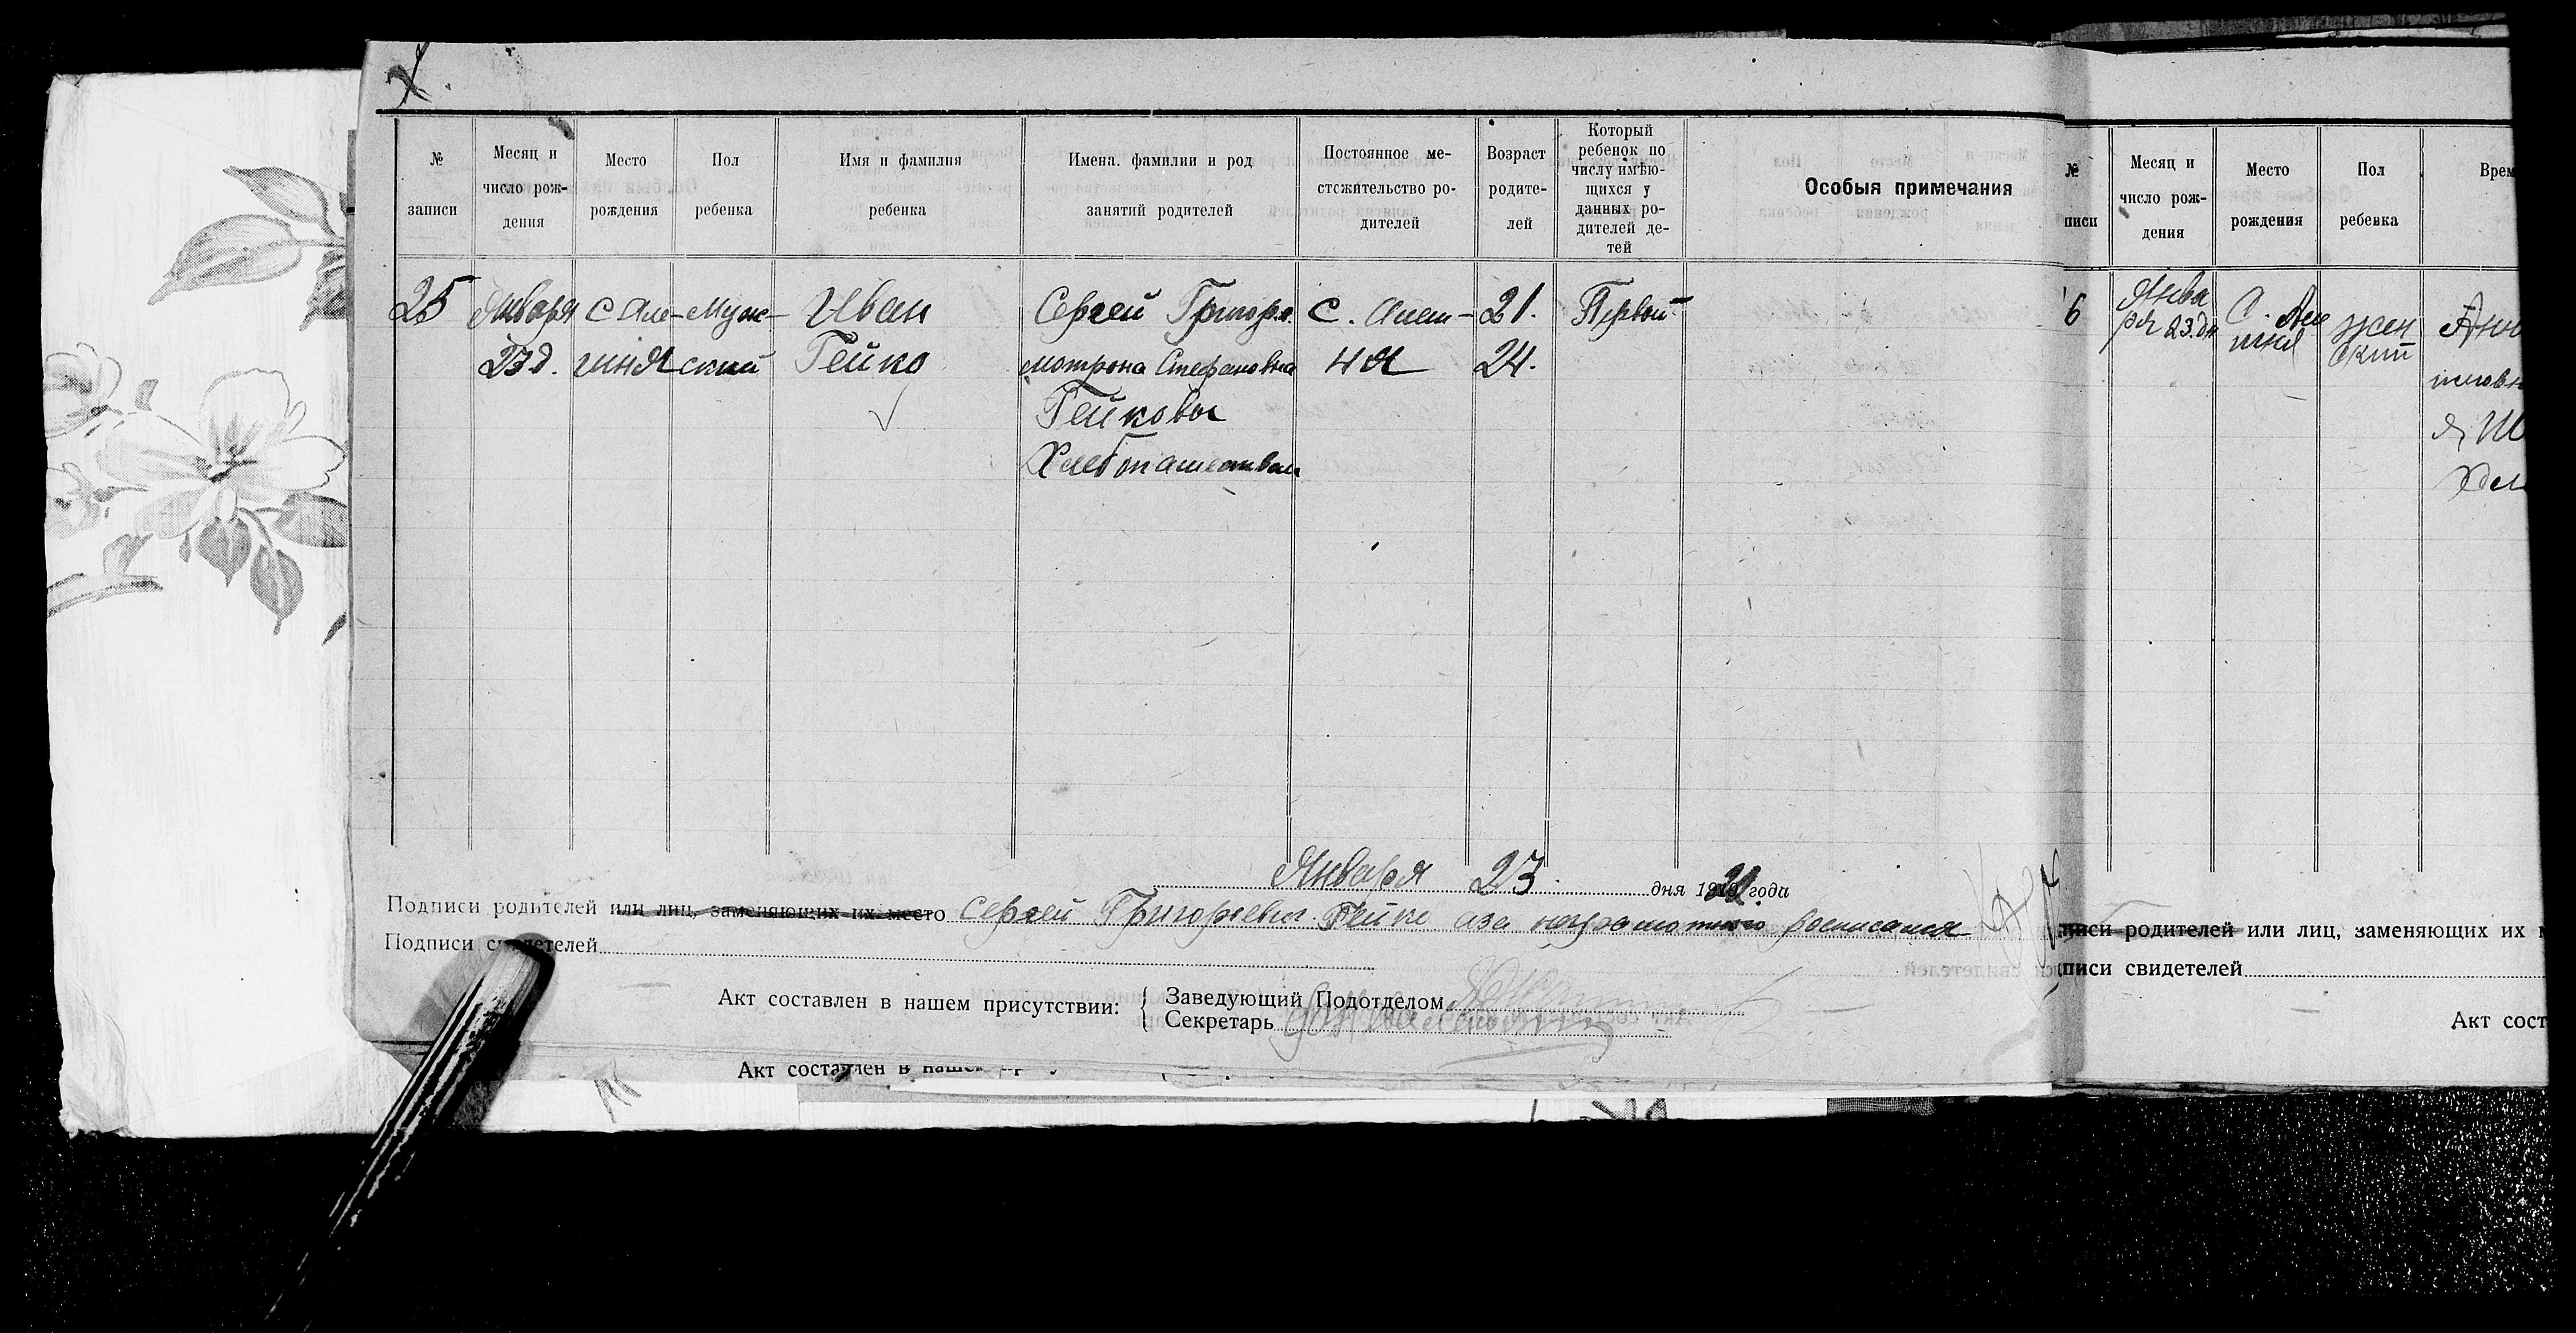 № записи
Месяц и число рож-дения
Место рождения
Пол ребенка
Имя и фамилия ребенка
Имена. фамилии и род занятий родителей
Постоянное ме-стожительство ро-дителей
Возраст родите-лей
Который ребенок по числу имѣю-щихся у данных ро-дителей де-тей
Особыя примечания
25 Января с Але- Муж- Иван Сергей Григор. с. Алеш- 21. Первый
23 д. шня ский Гейко мотрона Стефановна ня 24.
Гейковы
Хлебопашество
Января 23 дня 1921 года
Подписи родителей или лиц, заменяющих их место Сергей Григорьевич Гейко аза неграмотного росписался
Подписи свидетелей
Акт составлен в нашем присутствии: { Заведующий Подотделом
Секретарь
Акт составлен в нашем
№ писи
Месяц и число рож-дения
Место рождения
Пол ребенка
Врем
6 Янва С. Але жен Анн
ря 23 дн шня ский
писи родителей или лиц, заменяющих их м
писи свидетелей
Акт сост